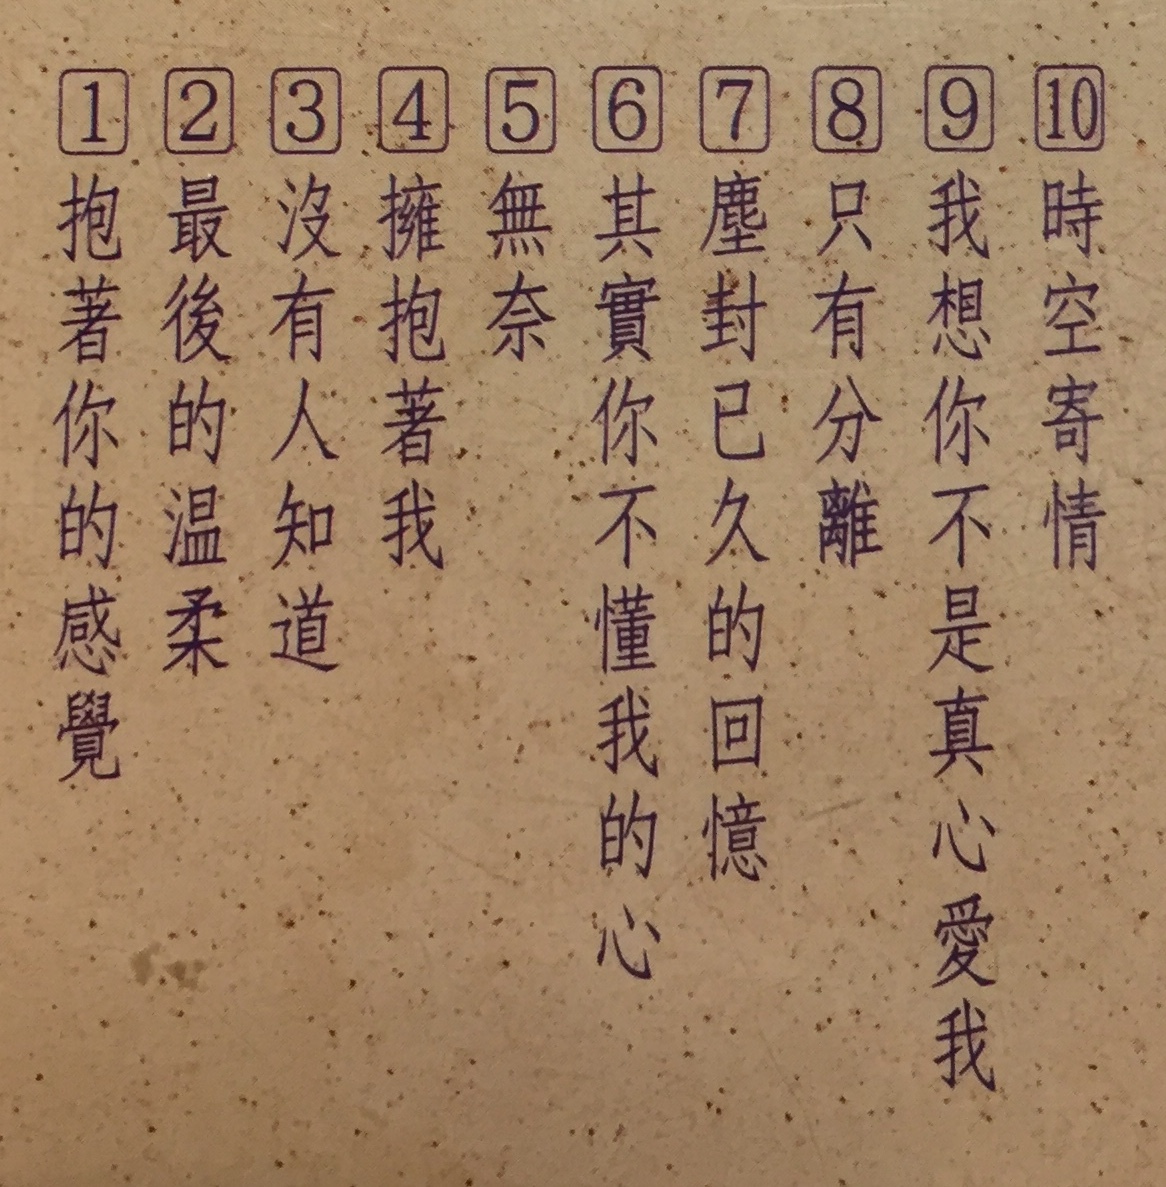 1 抱著你的感覺
2 最後的温柔
3 沒有人知道
4 擁抱著我
5 無奈
6 其實你不懂我的心
7 塵封已久的回憶
8 只有分離
9 我想你不是真心愛我
10 時空寄情